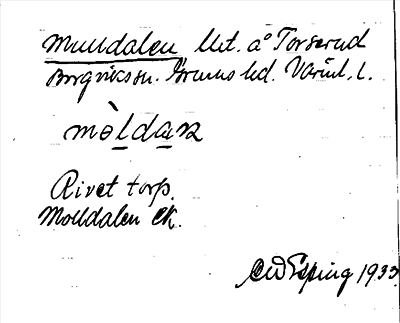 Mulldalen lht. å Torserud
Borgvikssn. Grums hd. Värml. l.
mòldaɳ
Rivet torp.
Molldalen Ek.
CW Esping 1933